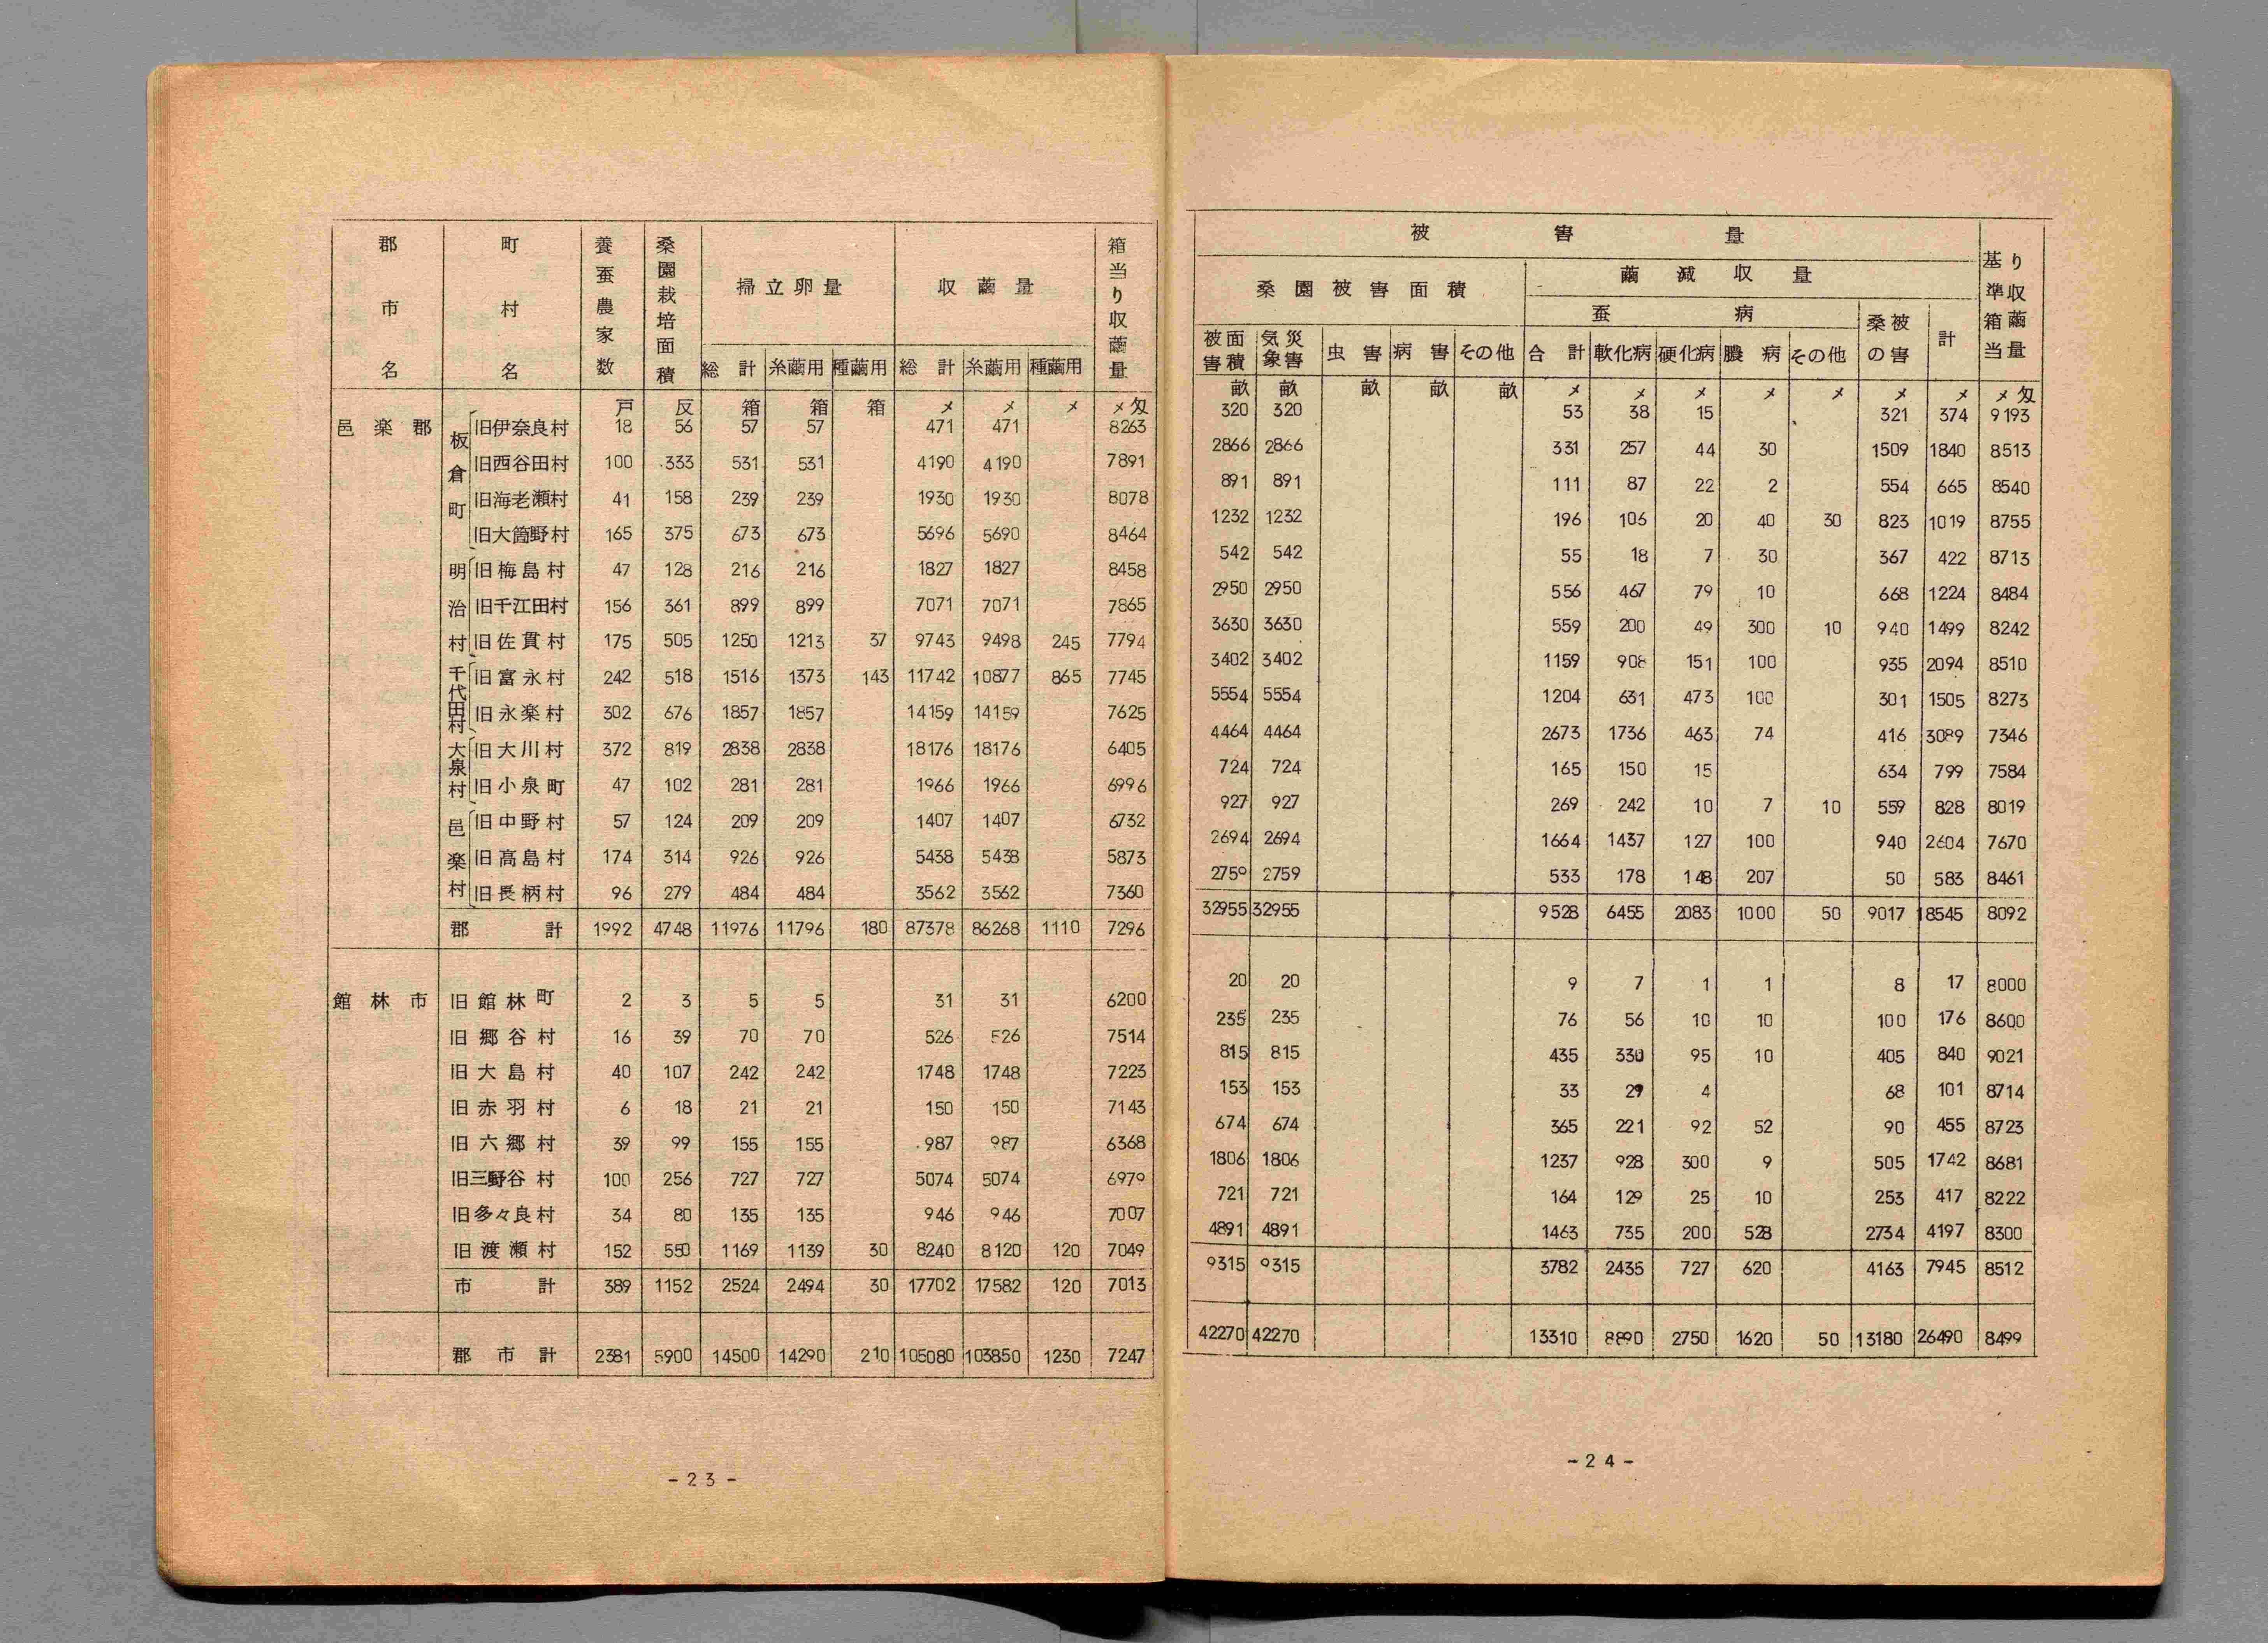 郡市名 町村名 養蚕農家数 桑園栽培面積 掃立卵量 収繭量 箱当り収繭量
総計 糸繭用 種繭用 総計 糸繭用 種繭用
戸 反 箱 箱 箱 〆 〆 〆 〆匁
邑楽郡 板倉町 旧伊奈良村 18 56 57 57 471 471 8263
旧西谷田村 100 333 531 531 4190 4190 7891
旧海老瀬村 41 158 239 239 1930 1930 8078
旧大箇野村 165 375 673 673 5696 5690 8464
明治村 旧梅島村 47 128 216 216 1827 1827 8458
旧千江田村 156 361 899 899 7071 7071 7865
旧佐貫村 175 505 1250 1213 37 9743 9498 245 7794
千代田村 旧富永村 242 518 1516 1373 143 11742 10877 865 7745
旧永楽村 302 676 1857 1857 14159 14159 7625
大泉村 旧大川村 372 819 2838 2838 18176 18176 6405
旧小泉町 47 102 281 281 1966 1966 6996
邑楽村 旧中野村 57 124 209 209 1407 1407 6732
旧高島村 174 314 926 926 5438 5438 5873
旧長柄村 96 279 484 484 3562 3562 7360
郡計 1992 4748 11976 11796 180 87378 86268 1110 7296
館林市 旧館林町 2 3 5 5 31 31 6200
旧郷谷村 16 39 70 70 526 526 7514
旧大島村 40 107 242 242 1748 1748 7223
旧赤羽村 6 18 21 21 150 150 7143
旧六郷村 39 99 155 155 987 987 6368
旧三野谷村 100 256 727 727 5074 5074 6979
旧多々良村 34 80 135 135 946 946 7007
旧渡瀬村 152 550 1169 1139 30 8240 8120 120 7049
市計 389 1152 2524 2494 30 17702 17582 120 7013
郡市計 2381 5900 14500 14290 210 105080 103850 1230 7247
-23-
被害量 基準箱当り収繭量
桑園被害面積 繭減収量
蚕病 桑被の害 計
被害面積 気象災害 虫害 病害 その他 合計 軟化病 硬化病 膿病 その他
畝 畝 畝 畝 畝 〆 〆 〆 〆 〆 〆 〆 〆匁
320 320 53 38 15 321 374 9193
2866 2866 331 257 44 30 1509 1840 8513
891 891 111 87 22 2 554 665 8540
1232 1232 196 106 20 40 30 823 1019 8755
542 542 55 18 7 30 367 422 8713
2950 2950 556 467 79 10 668 1224 8484
3630 3630 559 200 49 300 10 940 1499 8242
3402 3402 1159 908 151 100 935 2094 8510
5554 5554 1204 631 473 100 301 1505 8273
4464 4464 2673 1736 463 74 416 3089 7346
724 724 165 150 15 634 799 7584
927 927 269 242 10 7 10 559 828 8019
2694 2694 1664 1437 127 100 940 2604 7670
2759 2759 533 178 148 207 50 583 8461
32955 32955 9528 6455 2083 1000 50 9017 18545 8092
20 20 9 7 1 1 8 17 8000
235 235 76 56 10 10 100 176 8600
815 815 435 330 95 10 405 840 9021
153 153 33 29 4 68 101 8714
674 674 365 221 92 52 90 455 8723
1806 1806 1237 928 300 9 505 1742 8681
721 721 164 129 25 10 253 417 8222
4891 4891 1463 735 200 528 2734 4197 8300
9315 9315 3782 2435 727 620 4163 7945 8512
42270 42270 13310 8890 2750 1620 50 13180 26490 8499
-24-